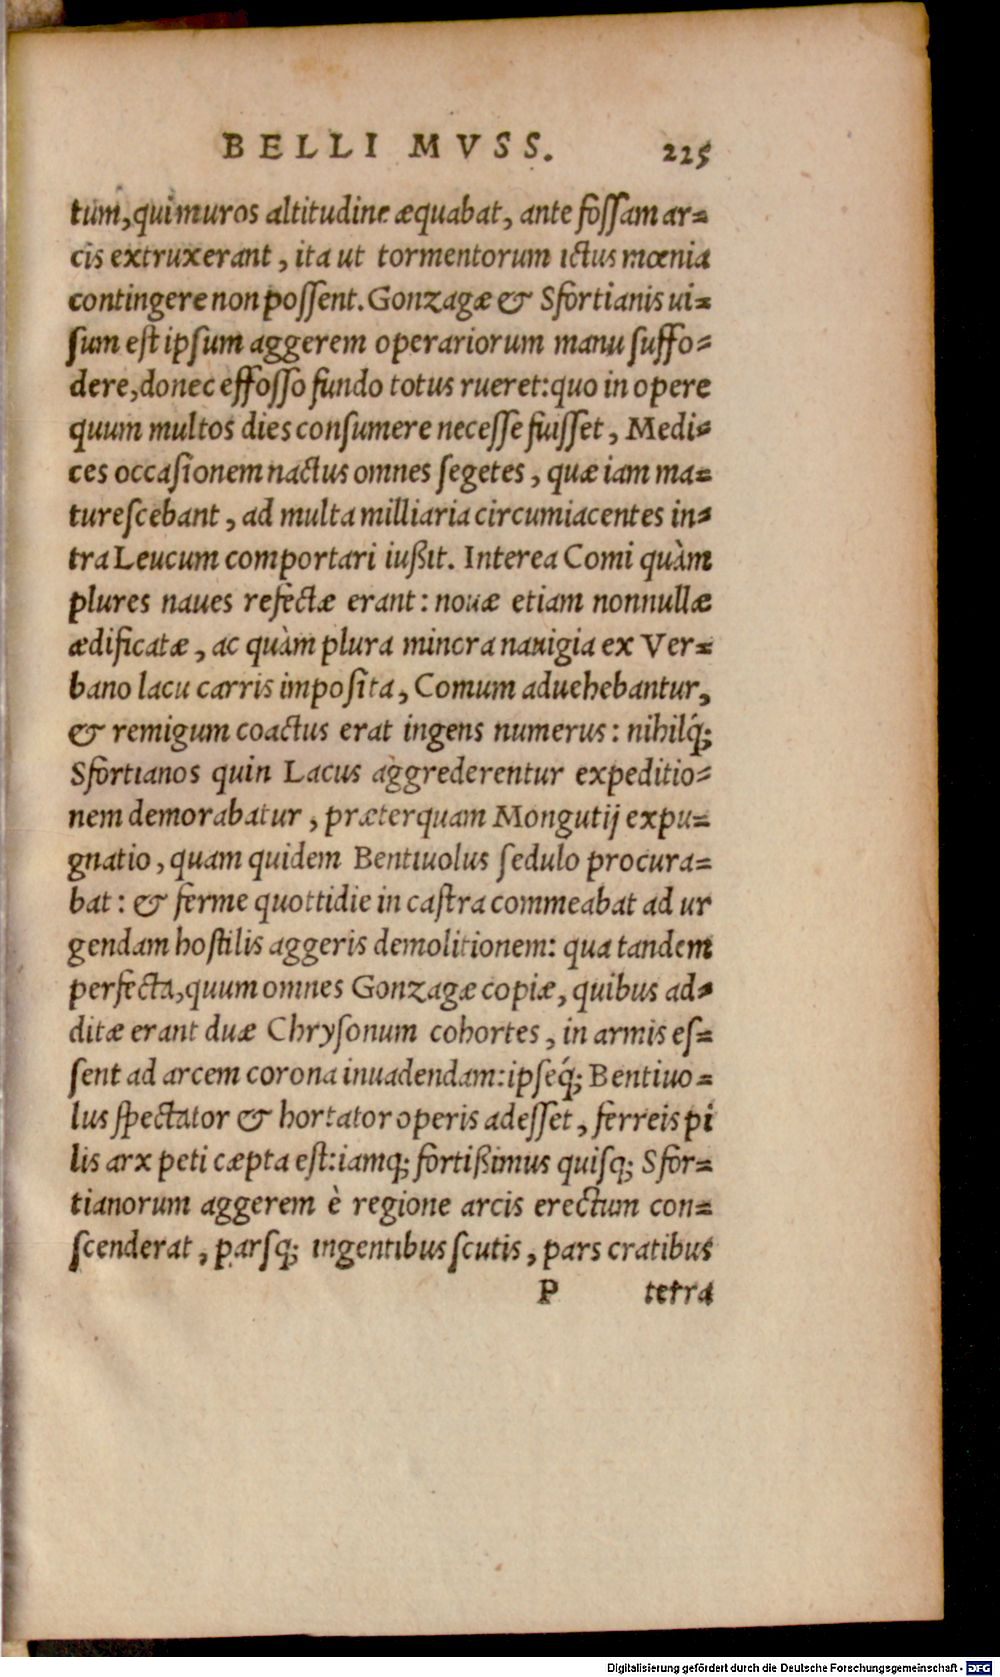 BELLI MVSS. 225
tum, qui muros altitudine æquabat, ante fossam ar=
cis extruxerant, ita ut tormentorum ictus mœnia
contingere non possent. Gonzagæ & Sfortianis ui=
sum est ipsum aggerem operariorum manu suffo=
dere, donec effosso fundo totus rueret: quo in opere
quum multos dies consumere necesse fuisset, Medi=
ces occasionem nactus omnes segetes, quæ iam ma=
turescebant, ad multa milliaria circumiacentes in=
tra Leucum comportari iußit. Interea Comi quàm
plures naues refectæ erant: nouæ etiam nonnullæ
ædificatæ, ac quàm plura minora nauigia ex Ver=
bano lacu carris imposita, Comum aduehebantur,
& remigum coactus erat ingens numerus: nihilq́;
Sfortianos quin Lacus aggrederentur expeditio=
nem demorabatur, præterquam Mongutij expu=
gnatio, quam quidem Bentiuolus sedulo procura=
bat: & ferme quottidie in castra commeabat ad ur
gendam hostilis aggeris demolitionem: qua tandem
perfecta, quum omnes Gonzagæ copiæ, quibus ad=
ditæ erant duæ Chrysonum cohortes, in armis es=
sent ad arcem corona inuadendam: ipseq́; Bentiuo=
lus spectator & hortator operis adesset, ferreis pi
lis arx peti cæpta est: iamq; fortißimus quisq; Sfor=
tianorum aggerem è regione arcis erectum con=
scenderat, parsq; ingentibus scutis, pars cratibus
P tetra
Digitalisierung gefördert durch die Deutsche Forschungsgemeinschaft - DFG